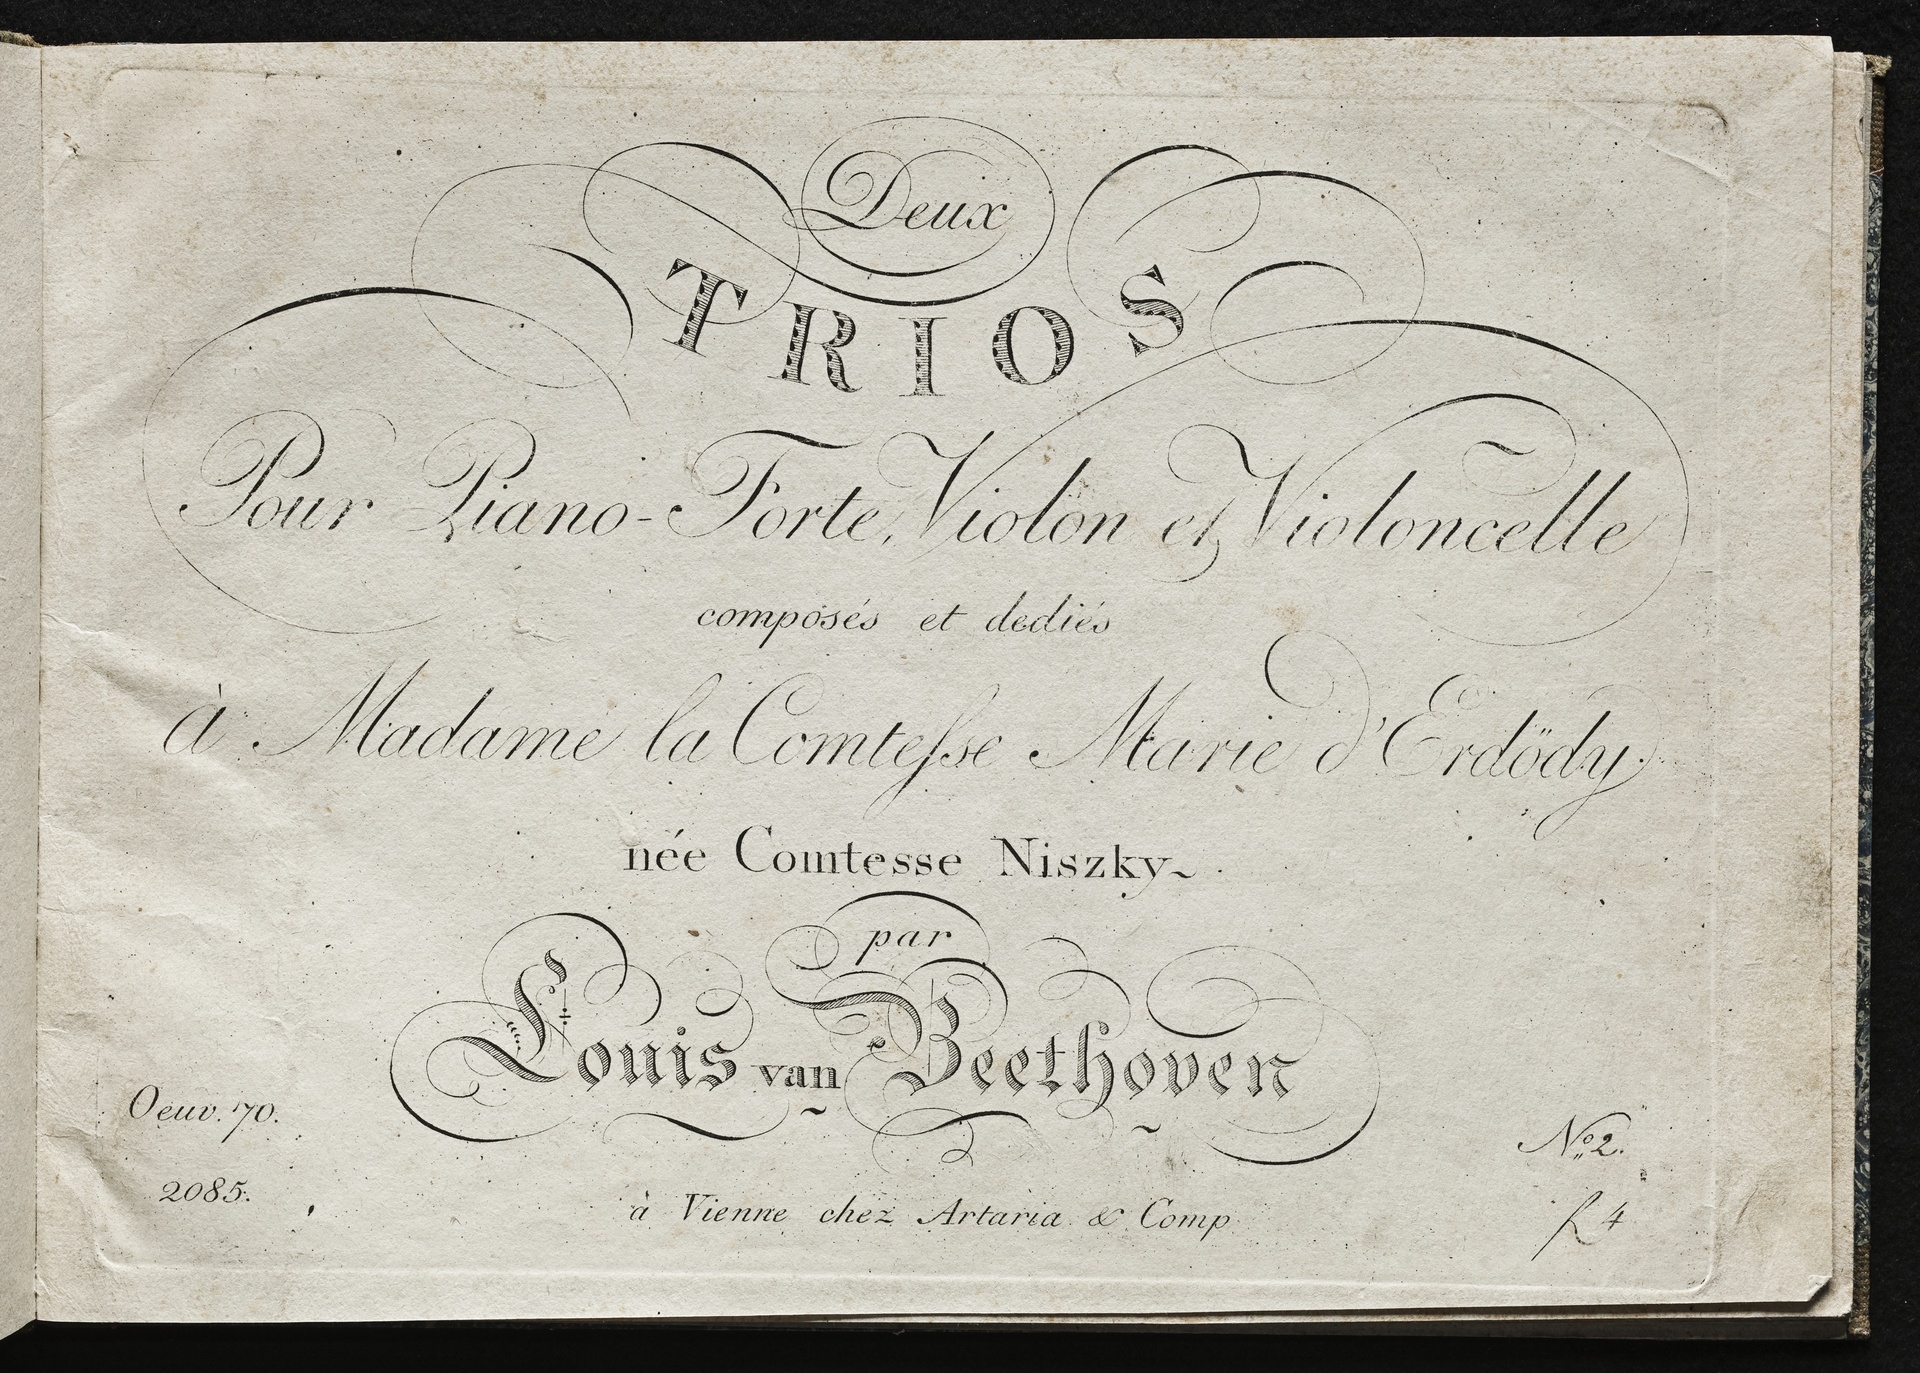 Deux
TRIOS
Pour Piano-Forte, Violon et Violoncelle
composés et dediés
à Madame la Comteſse Marie d'Erdödy
née Comtesse Niszky
par
Louis van Beethoven
Oeuv. 70.
No. 2.
2085.
à Vienne chez Artaria & Comp
f 4